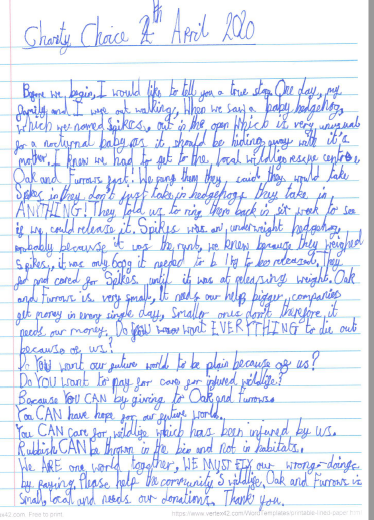 Charity Choice 2th April 2020
Before we begin, I would like to tell you a true story. One day, my
family and I were out walking, when we saw a baby hedgehog,
which we named Spikes, out in the open which is very unusual
for a nocturnal baby as it should be hiding away with it's
mother. I knew we had to get to the local wildlife rescue centre,
Oak and Furrows fast! We rang them they said they would take
Spikes in they don't just take in hedgehogs they take in
ANYTHING! They told us to ring them back in six week to see
if we could release it. Spikes was an underweight hedgehog,
probably because it was the runt, we knew because they weighed
Spikes, it was only 600g it needed to be 1kg to be released. They
fed and cared for Spikes until it was at releasing weight. Oak
and Furrows is very small, it needs our help bigger companies
get money in every single day, smaller ones don't therefore it
needs our money. Do YOU want EVERYTHING to die out
because of us?
Do YOU want our entire world to be plain because of us?
Do YOU want to pay for care for injured wildlife?
Because YOU CAN by giving to Oak and Furrows.
You CAN have hope for our entire world.
You CAN care for wildlife which has been injured by us.
Rubbish CAN be thrown in the bin and not in habitats.
We ARE one world together, WE MUST FIX our wrong-doings
by paying. Please help the community's wildlife, Oak and Furrows is
small, local and needs our donations. Thank you.
x42.com. Free to print.
https://www.vertex42.com/WordTemplates/printable-lined-paper.html